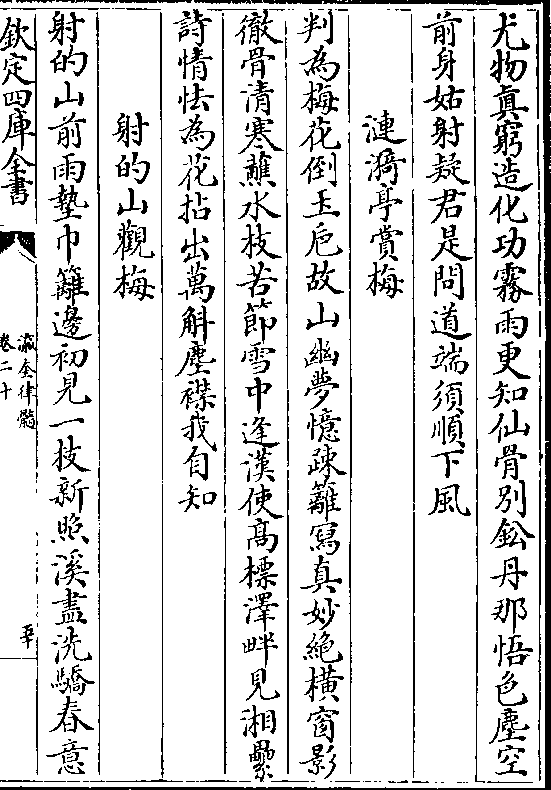 尤物真窮造化功霧雨更知仙骨別鉛丹那悟色塵空
前身姑射疑君是問道端須順下風
漣漪亭賞梅
判為梅花倒玉巵故山幽夢憶疎籬寫真妙絶橫窗影
徹骨清寒蘸水枝苦節雪中逢漢使髙標澤畔見湘纍
詩情怯為花拈出萬斛塵襟我自知
射的山觀梅
射的山前雨墊巾籬邊初見一枝新照溪盡洗驕春意
欽定四庫全書
瀛奎律髓
卷二十